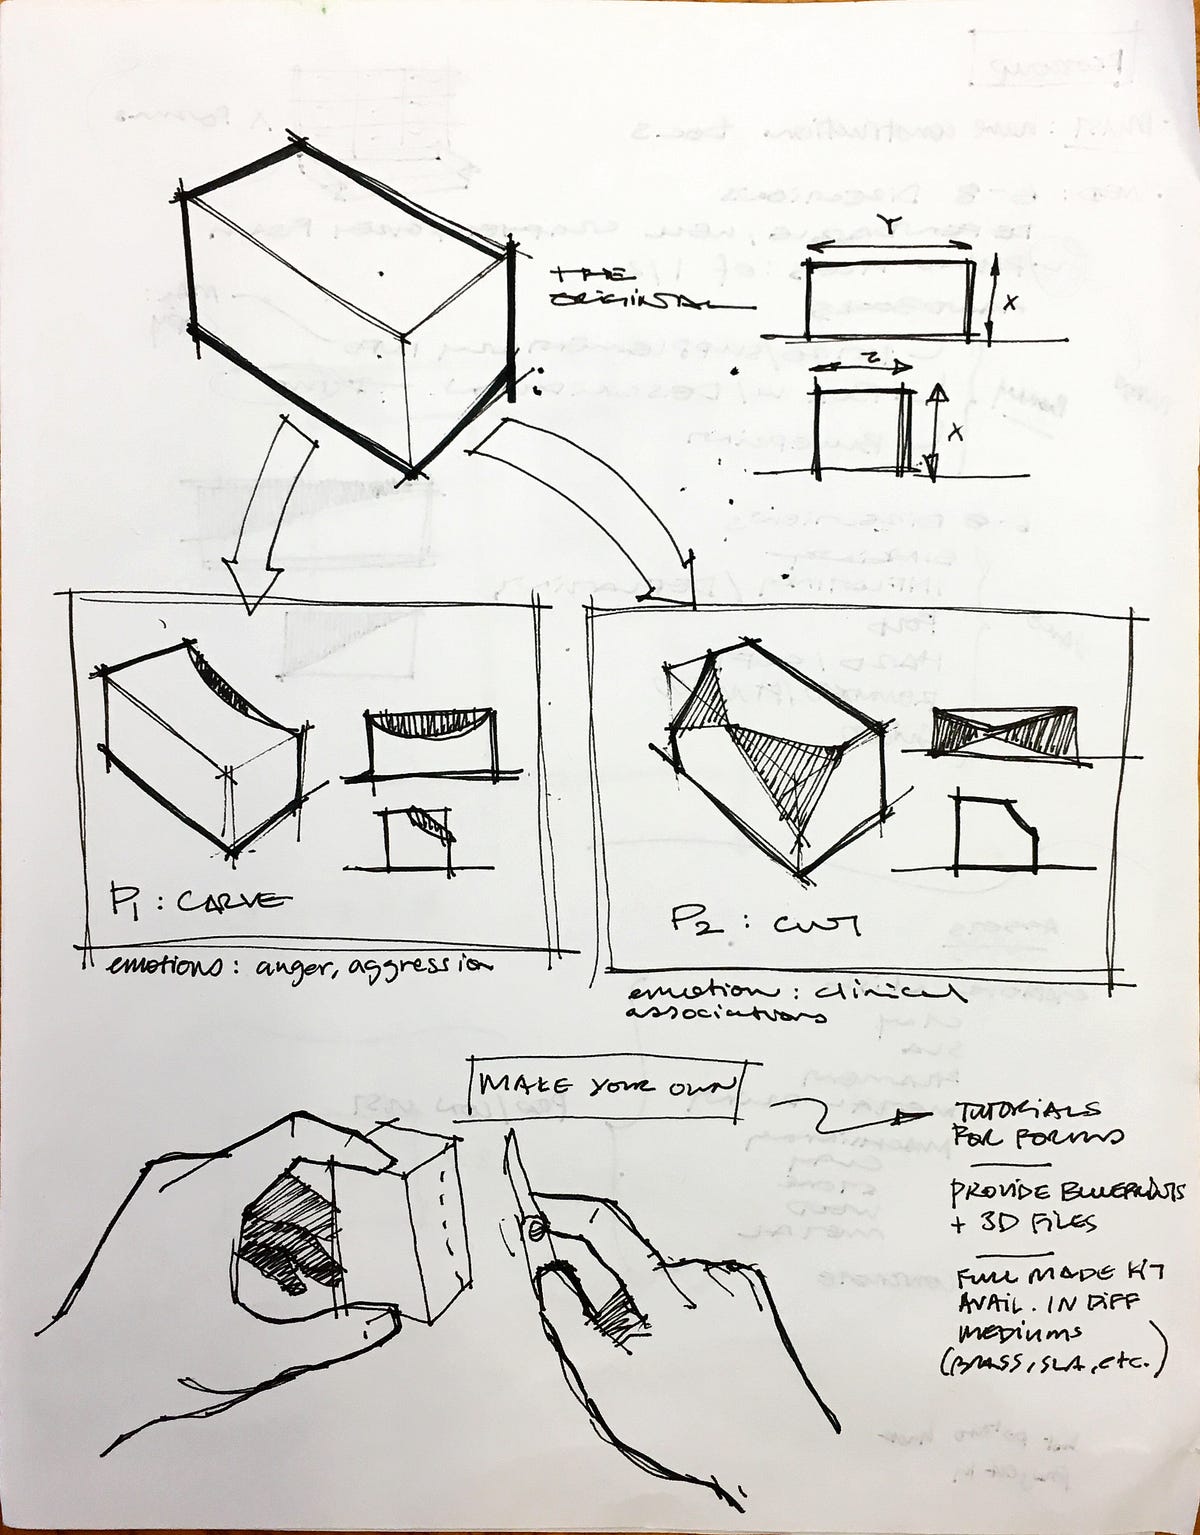 THE
ORIGINAL
Y
X
Z
X
P1 : CARVE
emotions : anger, aggression
P2 : CUT
emotion : clinical
associations
MAKE YOUR OWN
TUTORIALS
FOR FORMS
PROVIDE BLUEPRINTS
+ 3D FILES
FULL MADE KIT
AVAIL. IN DIFF
MEDIUMS
(BRASS, SLA, etc.)